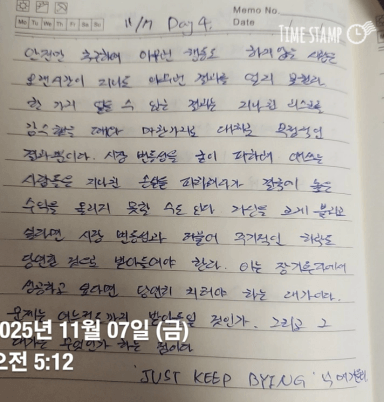 Memo No.
Mo Tu We Th Fr Sa Su
Date
11/7 Day 4.
TIME STAMP
안전만 추구하며 아무런 행동도 하지 않는 사람은
오랜시간이 지나도 아무런 결과를 얻지 못한다
한 가지 알 수 있는 결과는 지나친 리스크를
감수했을 때와 마찬가지로 대체로 부정적인
결과뿐이다. 시장 변동성을 굳이 피하려 애쓰는
사람들은 지나친 손실을 피하려다가 절대 높은
수익을 올리지 못할 수도 있다 자산을 크게 불리고
싶다면 시장 변동성과 더불어 주기적인 하락도
당연한 것으로 받아들여야 한다. 이는 장기투자에서
성공하고 싶다면 당연히 치러야 하는 대가이다.
문제는 어느정도까지 받아들일 것인가. 그리고 그
대가는 무엇인가 하는 점이다
'JUST KEEP BYING' 닉 매기울리
2025년 11월 07일 (금)
오전 5:12